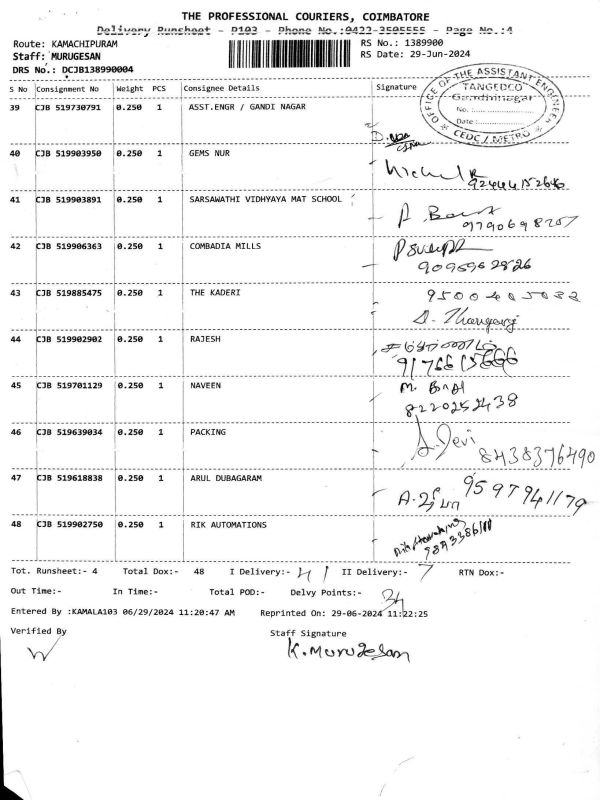 THE PROFESSIONAL COURIERS, COIMBATORE
Delivery Runsheet - P103 - Phone No.:0422-3505555 - Page No.:4
Route: KAMACHIPURAM RS No.: 1389900
Staff: MURUGESAN RS Date: 29-Jun-2024
DRS No.: DCJB138990004
S No Consignment No Weight PCS Consignee Details Signature
OFFICE OF THE ASSISTANT ENGINEER
TANGEDCO
Gandhinagar
No.:
Date:
CEDC / METRO
39 CJB 519730791 0.250 1 ASST.ENGR / GANDI NAGAR
40 CJB 519903950 0.250 1 GEMS NUR
9244152646
41 CJB 519903891 0.250 1 SARSAWATHI VIDHYAYA MAT SCHOOL
9790698207
42 CJB 519906363 0.250 1 COMBADIA MILLS
43 CJB 519885475 0.250 1 THE KADERI
44 CJB 519902902 0.250 1 RAJESH
45 CJB 519701129 0.250 1 NAVEEN
8220252438
46 CJB 519639034 0.250 1 PACKING
A. Devi
8438376490
47 CJB 519618838 0.250 1 ARUL DUBAGARAM
9597941179
48 CJB 519902750 0.250 1 RIK AUTOMATIONS
Tot. Runsheet:- 4 Total Dox:- 48 I Delivery:- 41 II Delivery:- 7 RTN Dox:-
Out Time:- In Time:- Total POD:- Delvy Points:- 34
Entered By :KAMALA103 06/29/2024 11:20:47 AM Reprinted On: 29-06-2024 11:22:25
Verified By Staff Signature
K. Murugesan